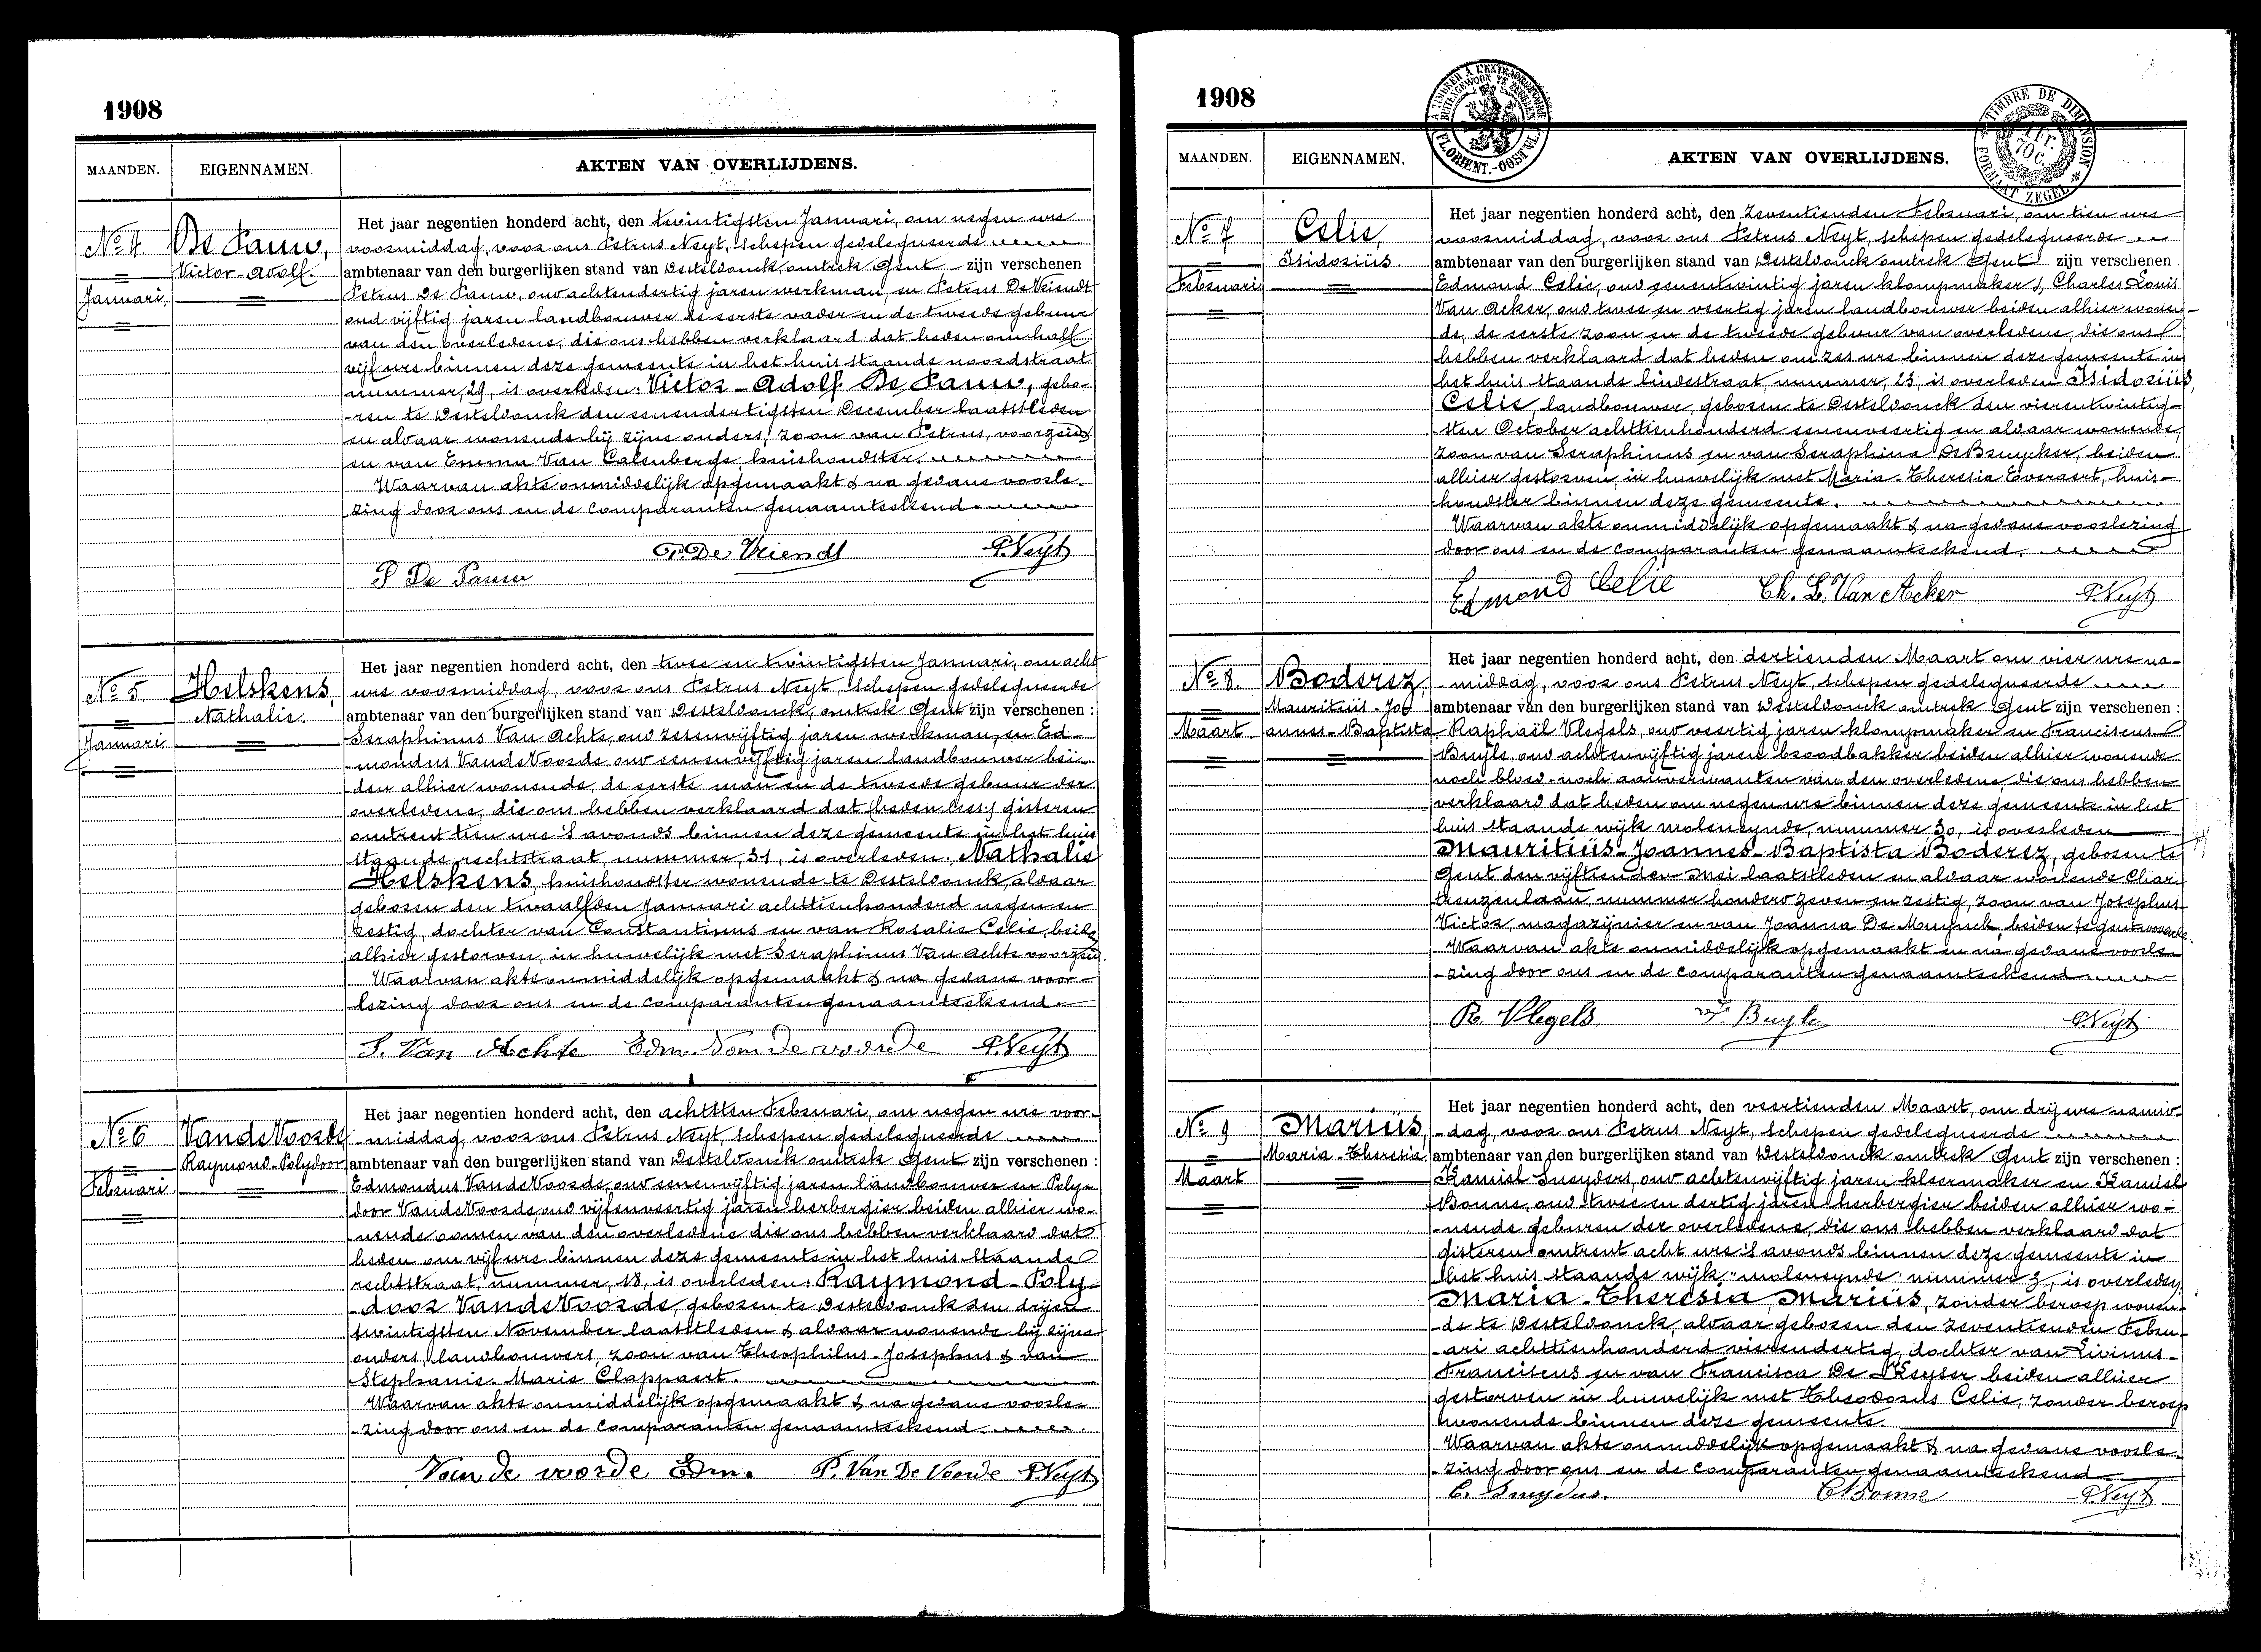 1908
MAANDEN. EIGENNAMEN. AKTEN VAN OVERLIJDENS.
No 4 De Pauw,
Victor-Adolf.
Januari,
Het jaar negentien honderd acht, den twintigsten Januari, om negen ure
voormiddag, voor ons Petrus Neyt, schepen gedelegueerde
ambtenaar van den burgerlijken stand van Desteldonck, omtrek Gent zijn verschenen
Petrus De Pauw, oud achtendertig jaren werkman, en Petrus De Vriendt
oud vijftig jaren landbouwer de eerste vader en de tweede gebuur
van den overledene, die ons hebben verklaard dat heden om half
vijf ure binnen deze gemeente in het huis staande noordstraat
nummer, 29, is overleden: Victor-Adolf De Pauw, gebo-
ren te Desteldonck den eenendertigsten December laatstleden
en aldaar wonende bij zijne ouders, zoon van Petrus, voorzeid
en van Emma Van Calenberge, huishoudster.
Waarvan akte onmiddelijk opgemaakt & na gedane voorle-
zing door ons en de comparanten genaamteekend
P. De Vriendt P. Neyt
P De Pauw
No 5 Helskens,
Nathalie.
Januari
Het jaar negentien honderd acht, den twee en twintigsten Januari, om acht
ure voormiddag, voor ons Petrus Neyt, schepen gedelegueerde
ambtenaar van den burgerlijken stand van Desteldonck, omtrek Gent zijn verschenen :
Seraphinus Van Achte, oud zesenvijftig jaren werkman, en Ed-
mondus VandeVoorde oud eenenvijftig jaren landbouwer bei-
den alhier wonende, de eerste man en de tweede gebuur der
overledene, die ons hebben verklaard dat gisteren
omtrent tien ure 's avonds binnen deze gemeente in het huis
staande rechtstraat, nummer, 31, is overleden, Nathalie
Helskens, huishoudster wonende te Desteldonck, aldaar
geboren den twaalfden Januari achttienhonderd negen en
zestig, dochter van Constantinus en van Rosalie Celie, beide
alhier gestorven, in huwelijk met Seraphinus Van Achte voorzeid.
Waarvan akte onmiddelijk opgemaakt & na gedane voor-
lezing door ons en de comparanten genaamteekend.
S. Van Achte Edm. Van de voorde P. Neyt
No 6 VandeVoorde
Raymond-Polydoor
Februari
Het jaar negentien honderd acht, den achtsten Februari, om negen ure voor-
middag, voor ons Petrus Neyt, schepen gedelegueerde
ambtenaar van den burgerlijken stand van Desteldonck omtrek Gent zijn verschenen :
Edmondus VandeVoorde, oud eenenvijftig jaren landbouwer en Poly-
door VandeVoorde oud vijfenveertig jaren herbergier beiden alhier wo-
nende oomen van den overledene die ons hebben verklaard dat
heden om vijf ure binnen deze gemeente in het huis staande
rechtstraat, nummer, 18, is overleden: Raymond-Poly-
door VandeVoorde, geboren te Desteldonck den drijen
twintigsten November laatstleden & aldaar wonende bij zijne
ouders, landbouwers, zoon van Theophilus-Josephus & van
Stephanie-Marie Clappaert.
Waarvan akte onmiddelijk opgemaakt & na gedane voorle-
zing door ons en de comparanten genaamteekend
Van de voorde Edm. P. Van De Voorde P. Neyt
1908
TIMBRE DE DIMENSION
FORMAAT ZEGEL
MAANDEN. EIGENNAMEN. AKTEN VAN OVERLIJDENS.
No 7 Celie,
Isidoriüs.
Februari
Het jaar negentien honderd acht, den zeventienden Februari, om tien ure
voormiddag, voor ons Petrus Neyt, schepen gedelegueerde
ambtenaar van den burgerlijken stand van Desteldonck omtrek Gent zijn verschenen
Edmond Celie, oud eenentwintig jaren klompmaker & Charles Louis
Van Acker, oud twee en veertig jaren landbouwer beiden alhier wonen-
de, de eerste zoon en de tweede gebuur van overledene, die ons
hebben verklaard dat heden om zes ure binnen deze gemeente in
het huis staande lindestraat, nummer, 23, is overleden Isidoriüs,
Celie, landbouwer, geboren te Desteldonck den vierentwintig-
sten October achttienhonderd eenenveertig en aldaar wonende,
zoon van Seraphinus en van Seraphina De Bruycker, beiden
alhier gestorven, in huwelijk met Maria-Theresia Everaert, huis-
houdster binnen deze gemeente.
Waarvan akte onmiddelijk opgemaakt & na gedane voorlezing
door ons en de comparanten genaamteekend,
Edmond Celie Ch. L. Van Acker P. Neyt
No 8. Boderez,
Mauritiüs-Jo-
Maart annes-Baptista
Het jaar negentien honderd acht, den dertienden Maart om vier ure na-
middag, voor ons Petrus Neyt, schepen gedelegueerde
ambtenaar van den burgerlijken stand van Desteldonck omtrek Gent zijn verschenen :
Raphaël Vlegels, oud veertig jaren klompmaker en Franciscus
Buyle, oud achtenvijftig jaren broodbakker beiden alhier wonende
noch bloed- noch aanverwanten van den overledene, die ons hebben
verklaard dat heden om negen ure binnen deze gemeente in het
huis staande wijk moleneynde, nummer 30, is overleden
Mauritiüs-Joannes-Baptista Boderez, geboren te
Gent den vijftienden Mei laatstleden en aldaar wonende Char-
treuzenlaan, nummer honderd zeven en zestig, zoon van Josephus-
Victor, magazijnier en van Joanna De Muynck, beiden te gent wonende.
Waarvan akte onmiddelijk opgemaakt en na gedane voorle-
zing door ons en de comparanten genaamteekend
R. Vlegels, F. Buyle P. Neyt
No 9 Mariüs,
Maria-Theresia
Maart
Het jaar negentien honderd acht, den veertienden Maart, om drij ure namid-
dag, voor ons Petrus Neyt, schepen gedelegueerde
ambtenaar van den burgerlijken stand van Desteldonck omtrek Gent zijn verschenen :
Kamiel Sneyders, oud achtenvijftig jaren kleermaker en Kamiel
Bonne, oud twee en dertig jaren herbergier beiden alhier wo-
nende geburen der overledene, die ons hebben verklaard dat
gisteren omtrent acht ure 's avonds binnen deze gemeente in
het huis staande wijk "moleneynde" nummer 3, is overleden
Maria-Theresia Mariüs, zonder beroep wonen-
de te Desteldonck, aldaar geboren den zeventienden Febru-
ari achttienhonderd vierendertig, dochter van Livinus-
Franciscus en van Francisca De Keyser beiden alhier
gestorven in huwelijk met Theodoruls Celie, zonder beroep
wonende binnen deze gemeente.
Waarvan akte onmiddelijk opgemaakt & na gedane voorle-
zing door ons en de comparanten genaamteekend
C. Sneyders. C Bonne P. Neyt